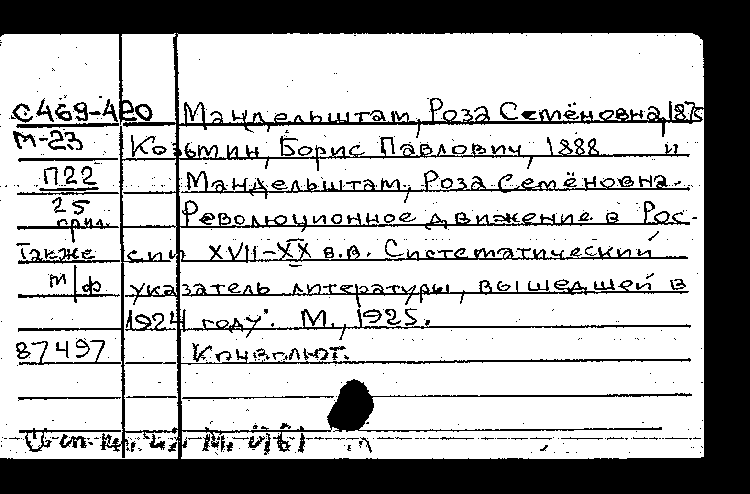 С469-420 Мандельштам, Роза Семёновна, 1875
М-23 Козьмин, Борис Павлович, 1888 и
П22 Мандельштам, Роза Семёновна.
25 Революционное движение в Рос-
прил.
Также сии XVII-XX в.в. Систематический
м/ф указатель литературы, вышедшей в
1924 году. М., 1925.
87497 Конволют.